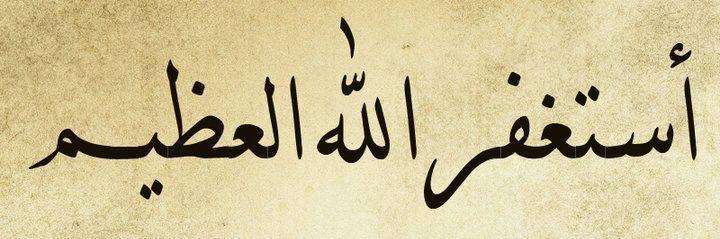 أستغفر الله العظيم